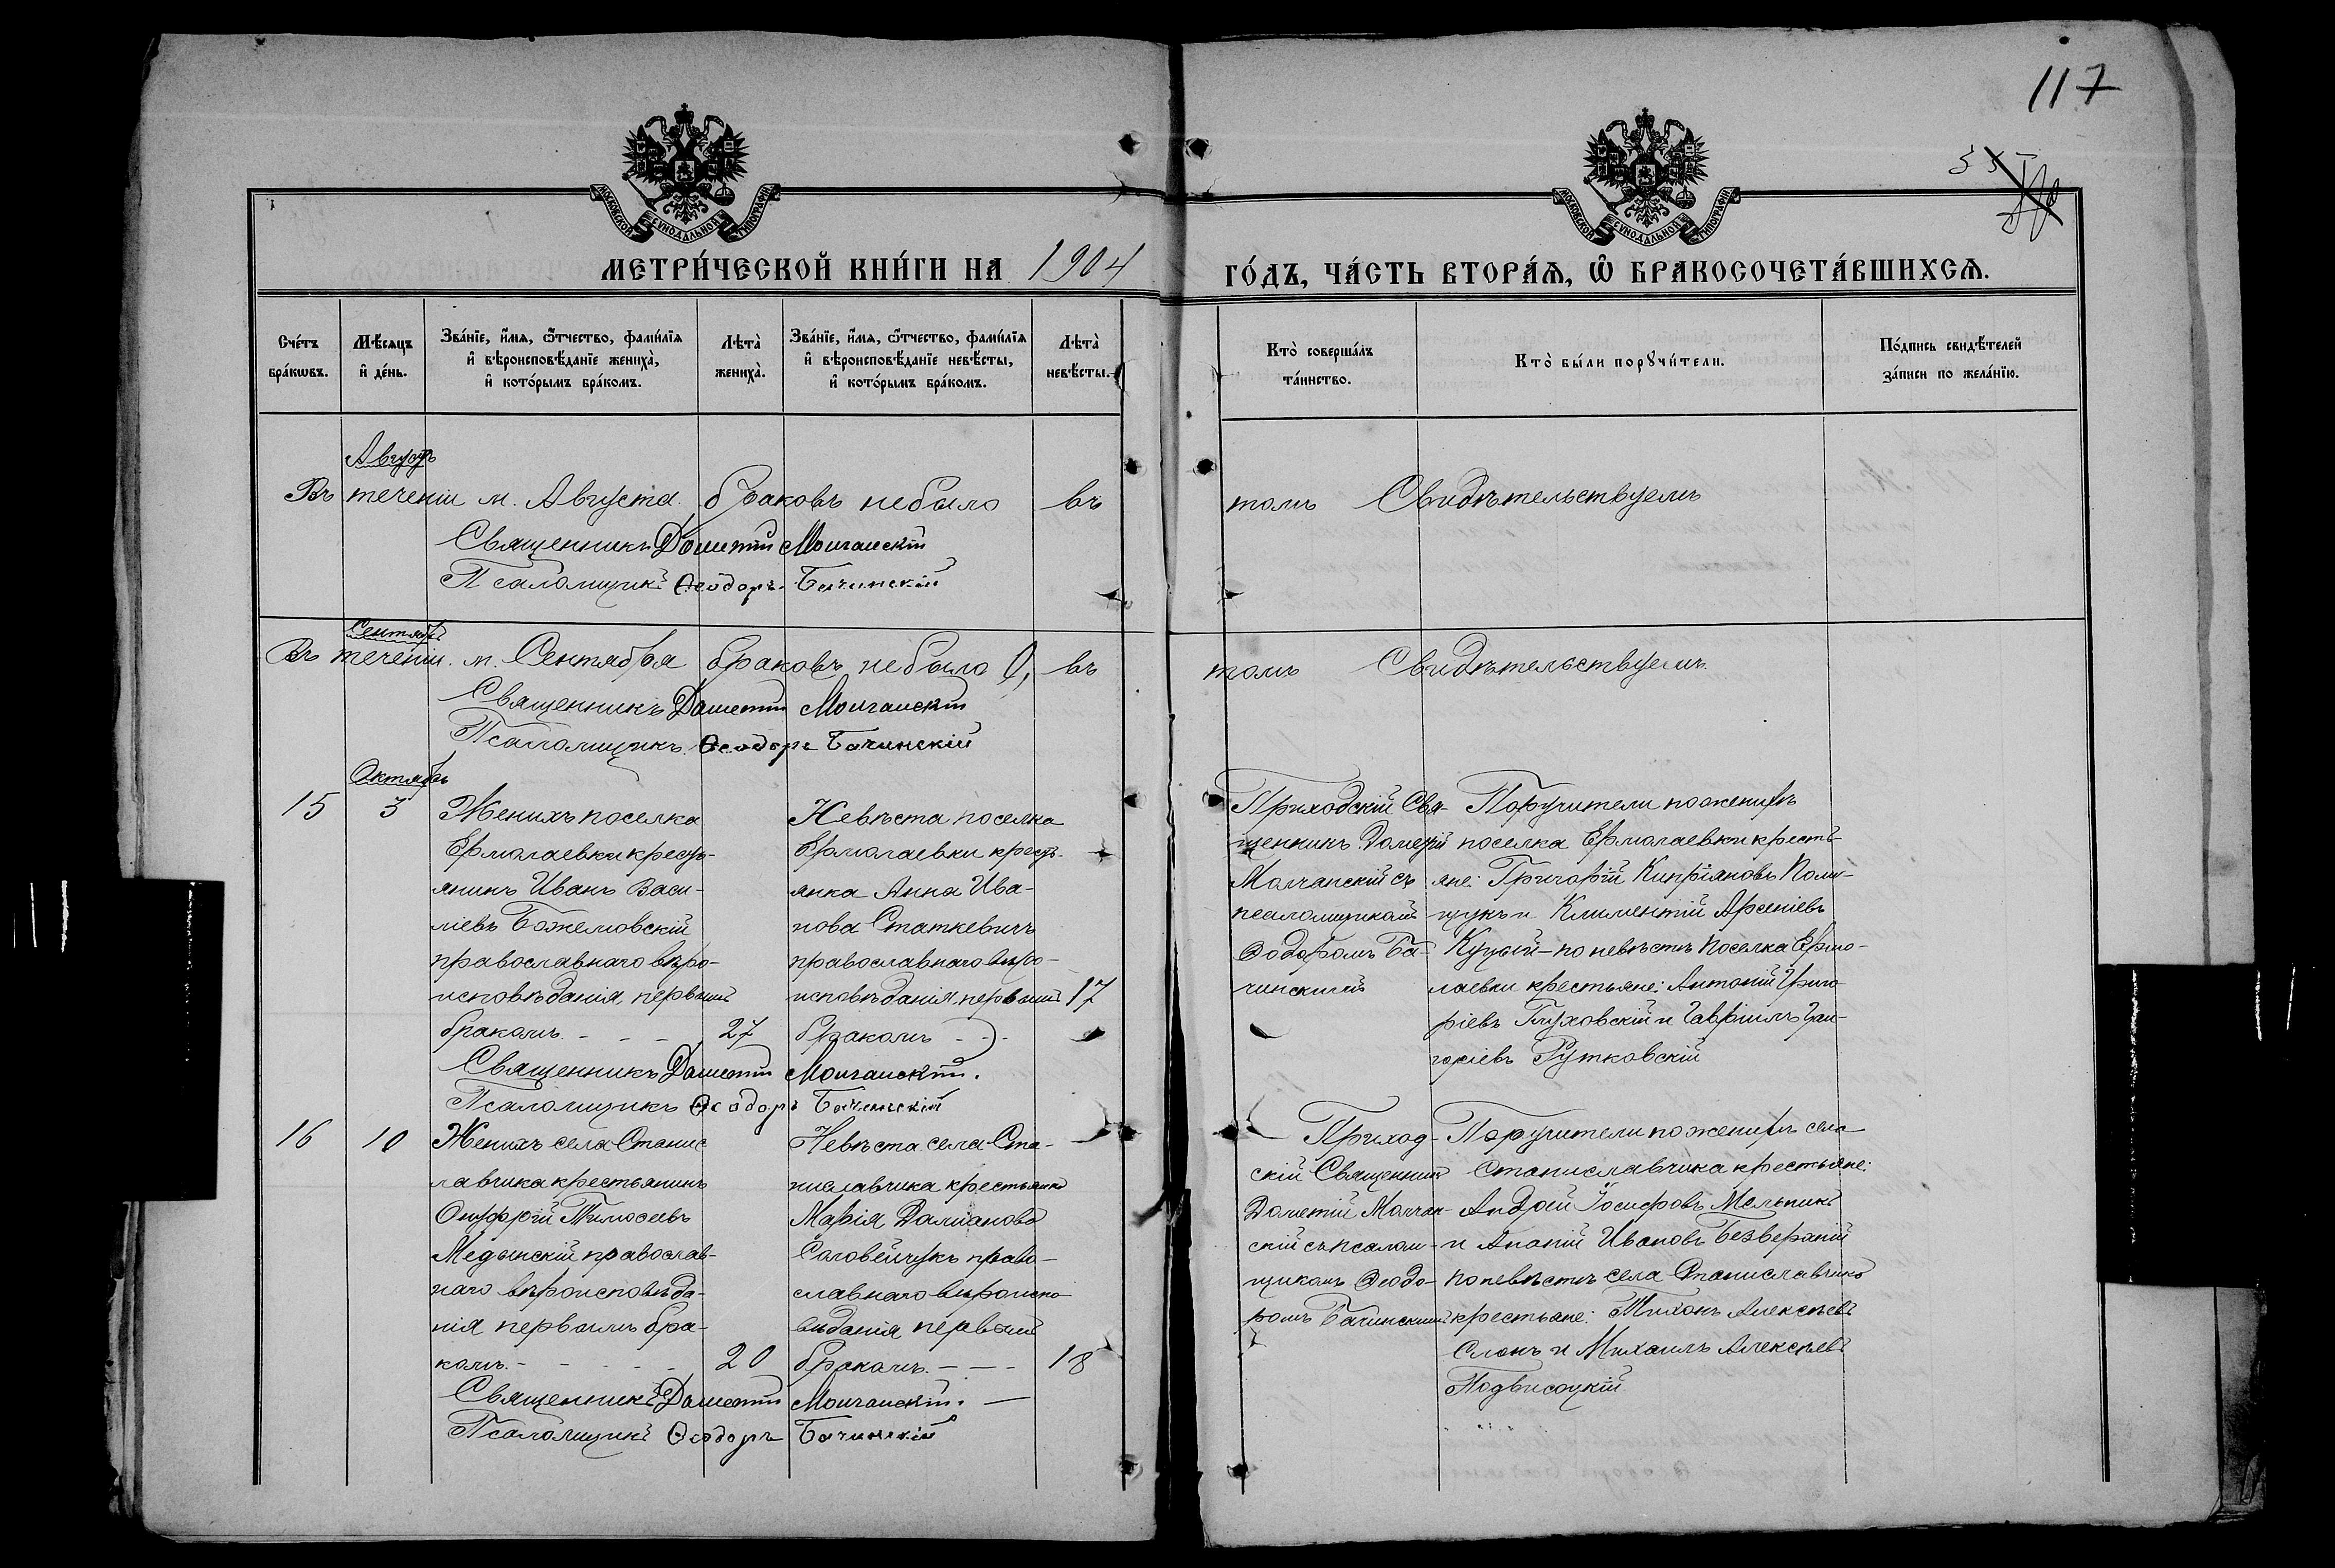 117
МОСКОВСКОЙ СѴНОДАЛЬНОЙ ТИПОГРАФІИ
МОСКОВСКОЙ СѴНОДАЛЬНОЙ ТИПОГРАФІИ
МЕТРИ́ЧЕСКОЙ КНИ́ГИ НА 1904
ГО́ДЪ, ЧА́СТЬ ВТОРА́Ѧ, Ѽ БРАКОСОЧЕТА́ВШИХСѦ.
Сче́тъ бра́кѡвъ.
Мѣ́сяцъ и҆ де́нь.
Зва́нїе, и҆́мѧ, ѻ҆́тчество, фами́лїѧ и҆ вѣроисповѣ́данїе жениха̀, и҆ кото́рымъ бра́комъ.
Лѣта̀ жениха̀.
Зва́нїе, и҆́мѧ, ѻ҆́тчество, фами́лїѧ и҆ вѣроисповѣ́данїе невѣ́сты, и҆ кото́рымъ бра́комъ.
Лѣта̀ невѣ́сты.
Кто̀ соверша́лъ та́инство.
Кто̀ бы́ли порꙋчи́тели.
По́дпись свидѣ́телей за́писи по жела́нїю.
Августъ
Въ теченіи м. Августа браковъ небыло въ
томъ Свидѣтельствуемъ
Священникъ Дометій Молчанскій
Псаломщикъ Ѳеодоръ Бачинскій
Сентябрь
Въ теченіи м. Сентября браковъ небыло, въ
томъ Свидѣтельствуемъ
Священникъ Дометій Молчанскій
Псаломщикъ Ѳеодоръ Бачинскій
Октябрь
15
3
Женихъ поселка
Ермолаевки кресть-
янинъ Иванъ Васи-
ліевъ Божемовскій
православнаго вѣро-
исповѣданія, первымъ
бракомъ - - - 27
Невѣста поселка
Ермолаевки кресть-
янка Анна Ива-
нова Статкевичъ
православнаго вѣро-
исповѣданія первымъ 17
бракомъ - - -
Приходскій Свя-
щенникъ Дометій
Молчанскій съ
псаломщикомъ
Ѳеодоромъ Ба-
чинскимъ
Поручители по женихѣ
поселка Ермолаевки кресть-
яне: Григорій Кипріановъ Поли-
щукъ и Климентій Арсеніевъ
Куцый - по невѣстѣ поселка Ермо-
лаевки крестьяне: Антоній Григо-
ріевъ Глуховскій и Гавріилъ Гри-
горіевъ Рутковскій
Священникъ Дометій Молчанскій.
Псаломщикъ Ѳеодоръ Бачинскій
16
10
Женихъ села Станис
лавчика крестьянинъ
Онуфрій Тимоѳеевъ
Медынскій православ-
наго вѣроисповѣда-
нія первымъ бра-
комъ. - - - - 20
Невѣста села Ста-
ниславчика крестьянка
Марія Даміанова
Соловейчукъ право-
славнаго вѣроиспо
вѣданія первымъ
бракомъ. - - - 18
Приход-
скій Священникъ
Дометій Молчан-
скій съ псалом-
щикомъ Ѳеодо-
ромъ Бачинскимъ
Поручители по женихѣ села
Станиславчика крестьяне:
Андрей Іосифовъ Мельникъ
и Ананій Ивановъ Безверхній
по невѣстѣ села Станиславчика
крестьяне: Тихонъ Алексѣевъ
Слонъ и Михаилъ Алексѣевъ
Подвисоцкій
Священникъ Дометій Молчанскій. -
Псаломщикъ Ѳеодоръ Бачинскій